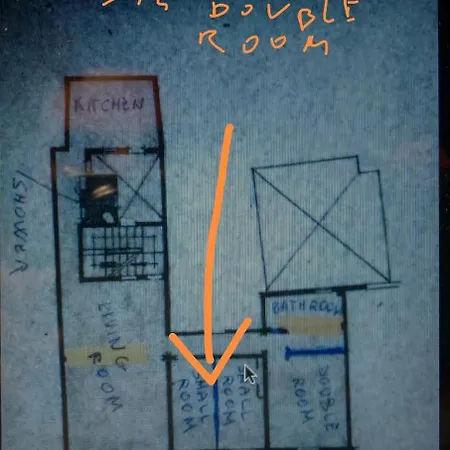 DOUBLE
ROOM
KITCHEN
SHOWER
LIVING
ROOM
BATHROOM
SMALL
ROOM
SMALL
ROOM
DOUBLE
ROOM